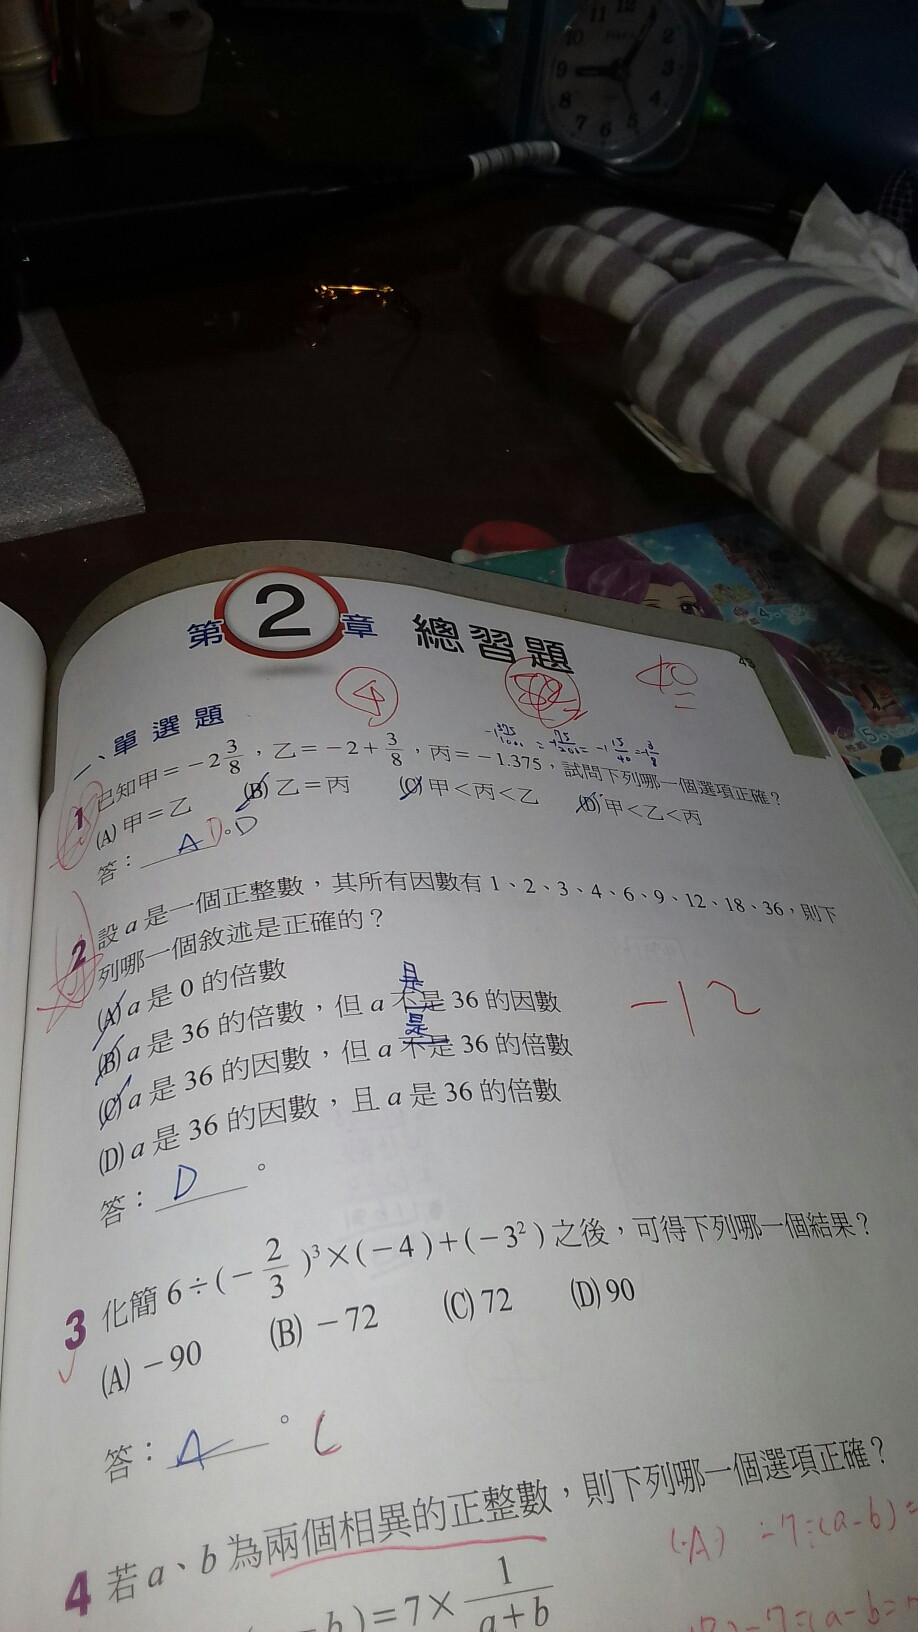 第2章 總習題
4
40
一、單選題
1 已知甲=-2 3/8，乙=-2+3/8，丙=-1.375，試問下列哪一個選項正確？
(A) 甲=乙 (B) 乙=丙 (C) 甲<丙<乙 (D) 甲<乙<丙
答：A D。D
2 設 a 是一個正整數，其所有因數有 1、2、3、4、6、9、12、18、36，則下
列哪一個敘述是正確的？
(A) a 是 0 的倍數
是
(B) a 是 36 的倍數，但 a 不是 36 的因數
-12
是
(C) a 是 36 的因數，但 a 不是 36 的倍數
(D) a 是 36 的因數，且 a 是 36 的倍數
答：D。
3 化簡 6÷(-2/3)³×(-4)+(-3²) 之後，可得下列哪一個結果？
(A) -90 (B) -72 (C) 72 (D) 90
答：A。C
4 若 a、b 為兩個相異的正整數，則下列哪一個選項正確？
(A) -7÷(a-b)=
b)=7×1/(a+b)
11 12 1 2 3 4 5 6 7 8 9 10